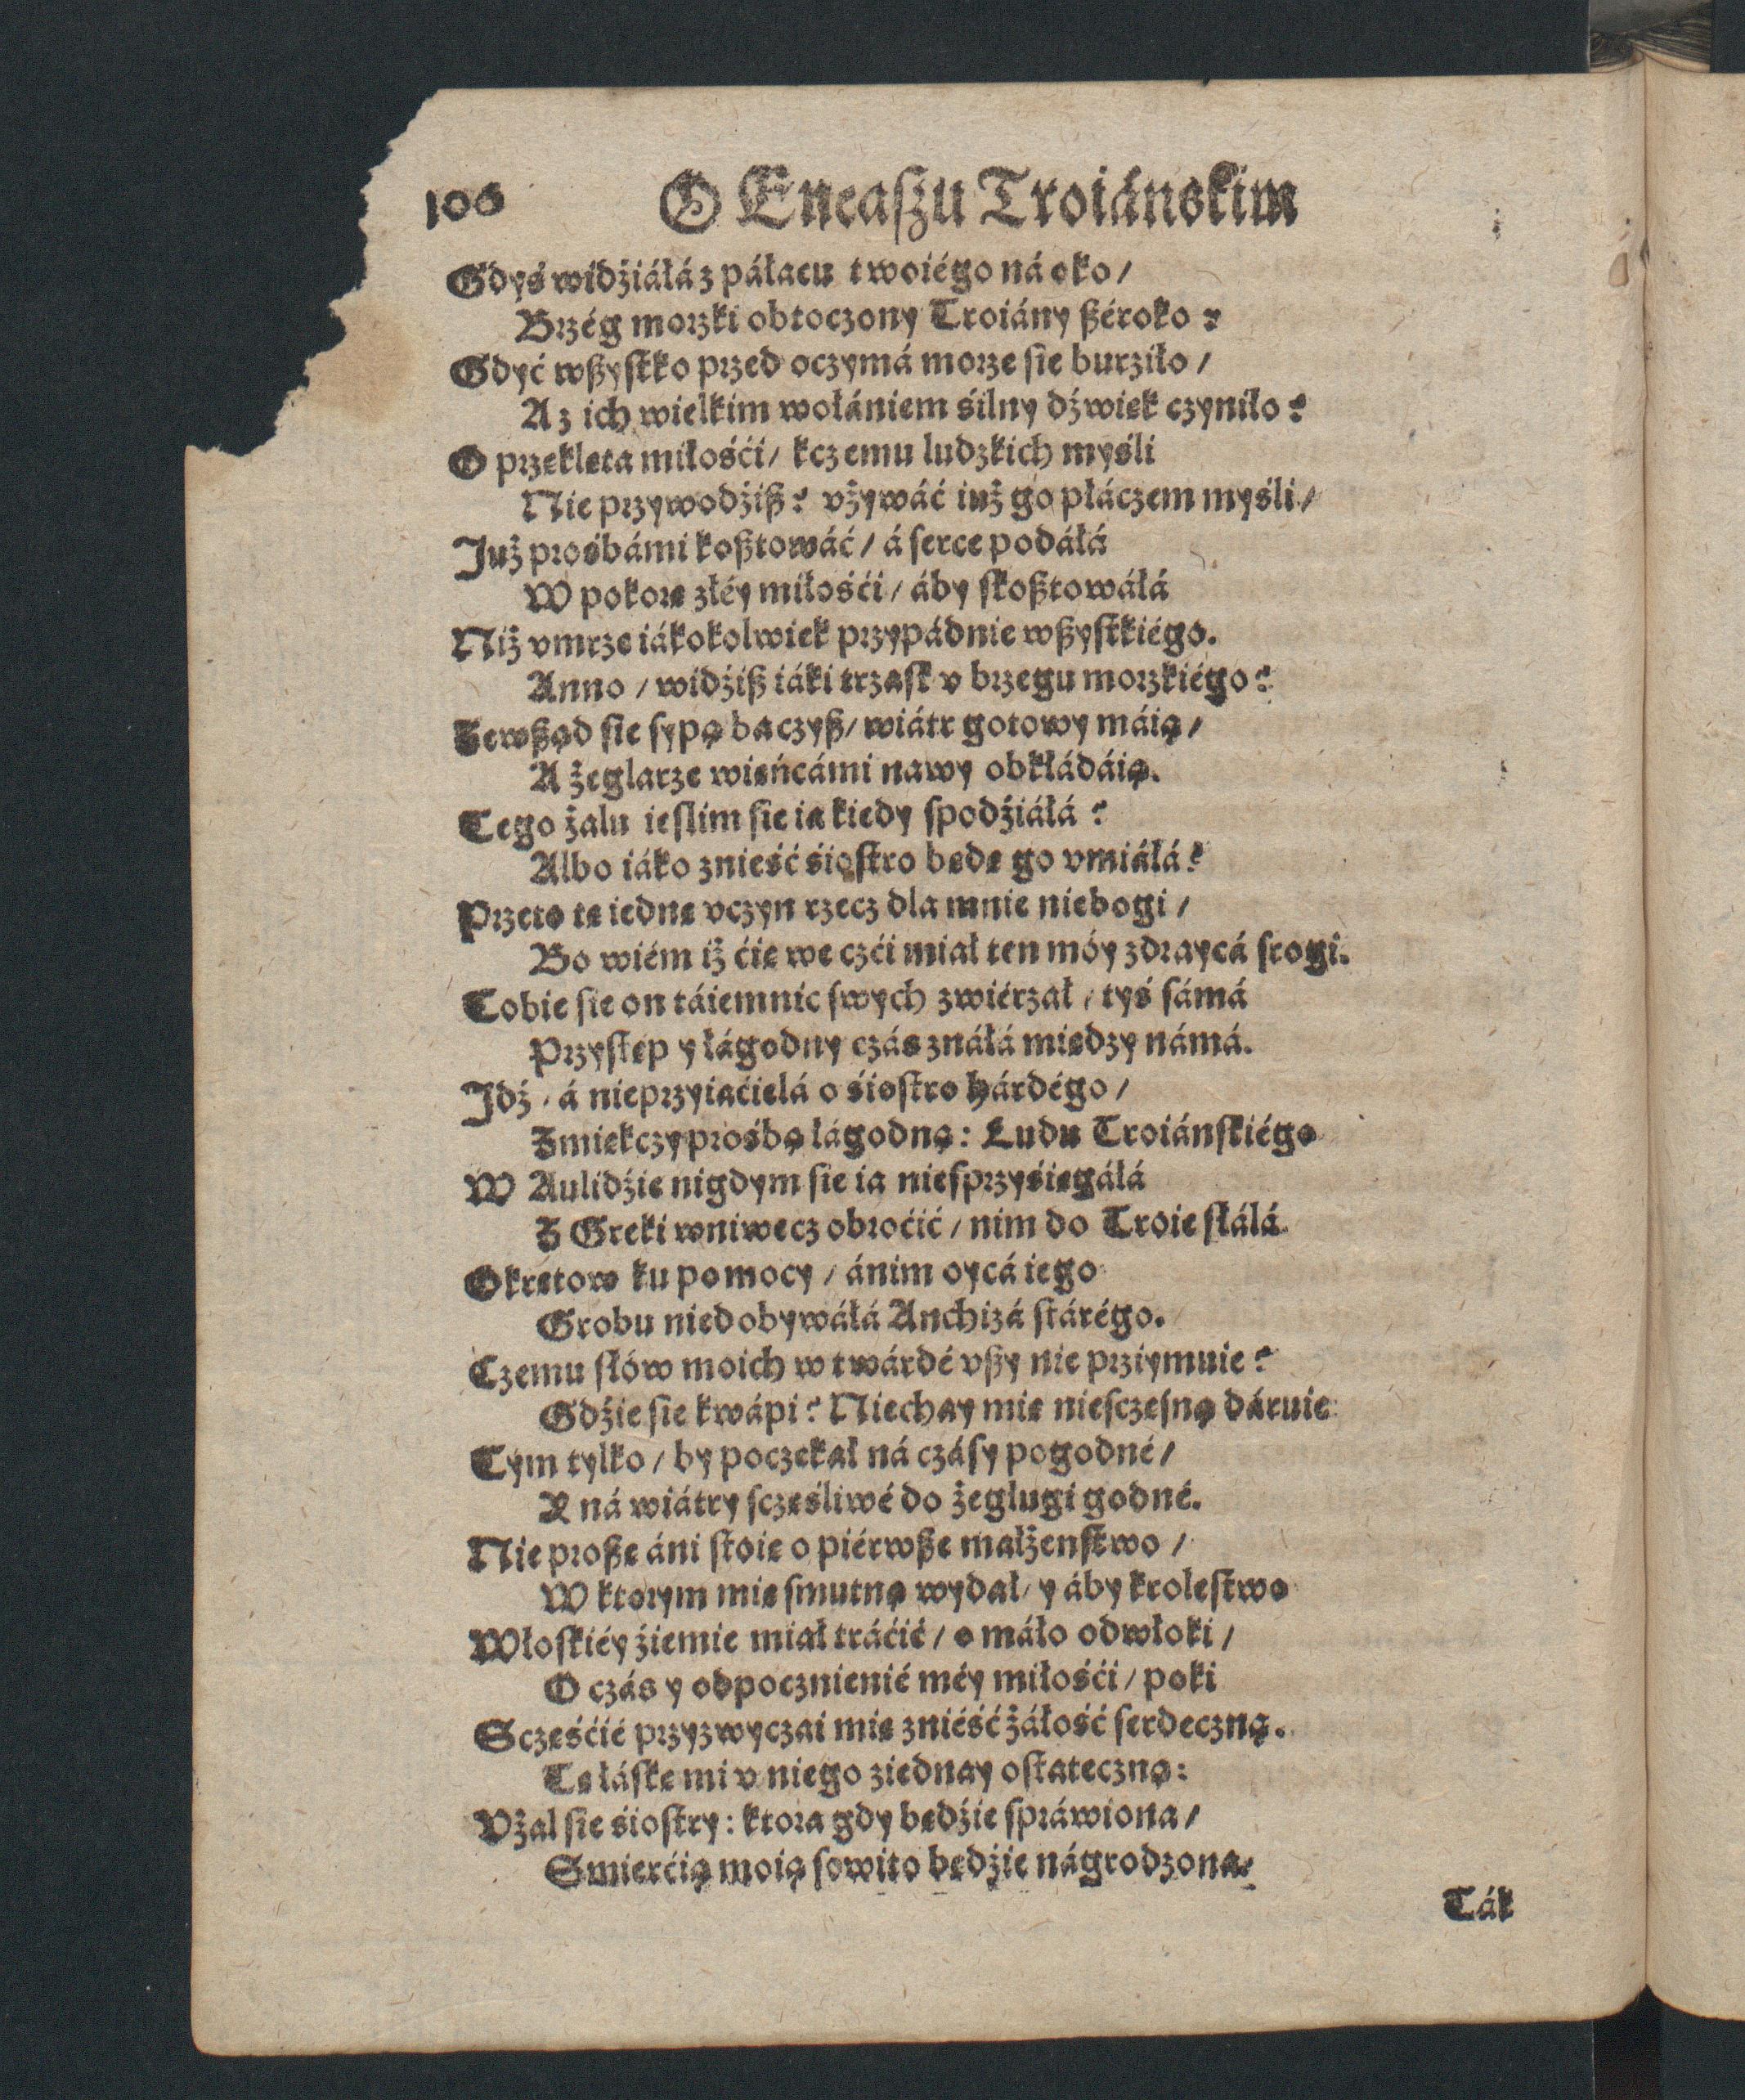 106 O Eneaſzu Troiánskim
Gdyś widźiáłá z páłacu twoiégo ná oko /
Brzég morzki obtoczony Troiány ßéroko ?
Gdyć wßyſtko przed oczymá morze ſie burzıło /
A z ich wielkim wołániem śilny dźwięk czyniło ?
O przeklęta miłośći / kczemu ludzkich myśli
Nie przywodźiß ? vżywáć iuż go płáczem myśli /
Już prośbámi koßtowáć / á ſerce podáłá
W pokorę złéy miłośći / áby ſkoßtowáłá
Niż vmrze iákokolwiek przypádnie wßyſtkiégo.
Anno / widźiß iáki trzaſk v brzegu morzkiégo ?
Zewßąd ſie ſypą baczyß / wiátr gotowy máią /
A żeglarze wieńcámi nawy obkłádáią.
Tego żalu ieſlim ſie ia kiedy ſpodźiáłá ?
Albo iáko znieść śioſtro będę go vmiáłá ?
Przeto tę iednę vczyn rzecz dla mnie niebogi /
Bo wiém iż ćię we czći miał ten móy zdraycá ſrogi.
Tobie ſie on táiemnic ſwych zwiérzał / tyś ſámá
Przyſtęp y łágodny czás znáłá między námá.
Jdź / á nieprzyiaćielá o śioſtro hárdégo /
Zmiękczy prośbą łágodną : Ludu Troiánſkiégo
W Aulidźie nigdym ſie ia nieſprzyśięgáłá
Z Greki wniwecz obroćić / nim do Troie ſłáłá
Okrętow ku pomocy / ánim oycá iego
Grobu niedobywáłá Anchizá ſtárégo.
Czemu ſłów moich w twárdé vßy nie prziymuie ?
Gdźie ſie kwápi ? Niechay mię nieſczęſną dáruie
Tym tylko / by poczekał ná czáſy pogodné /
Y ná wiátry ſczęśliwé do żeglugi godné.
Nie proßę áni ſtoię o piérwße małżenſtwo /
W ktorym mię ſmutną wydał / y áby kroleſtwo
Włoſkiéy źiemie miał tráćić / o máło odwłoki /
O czás y odpocznienié méy miłośći / poki
Sczęśćié przyzwyczai mię zniéść żáłość ſerdeczną.
Tę łáſkę mi v niego ziednay oſtateczną :
Vżal ſie śioſtry : ktora gdy będźie ſpráwiona /
Smierćią moią ſowito będźie nágrodzona.
Ták